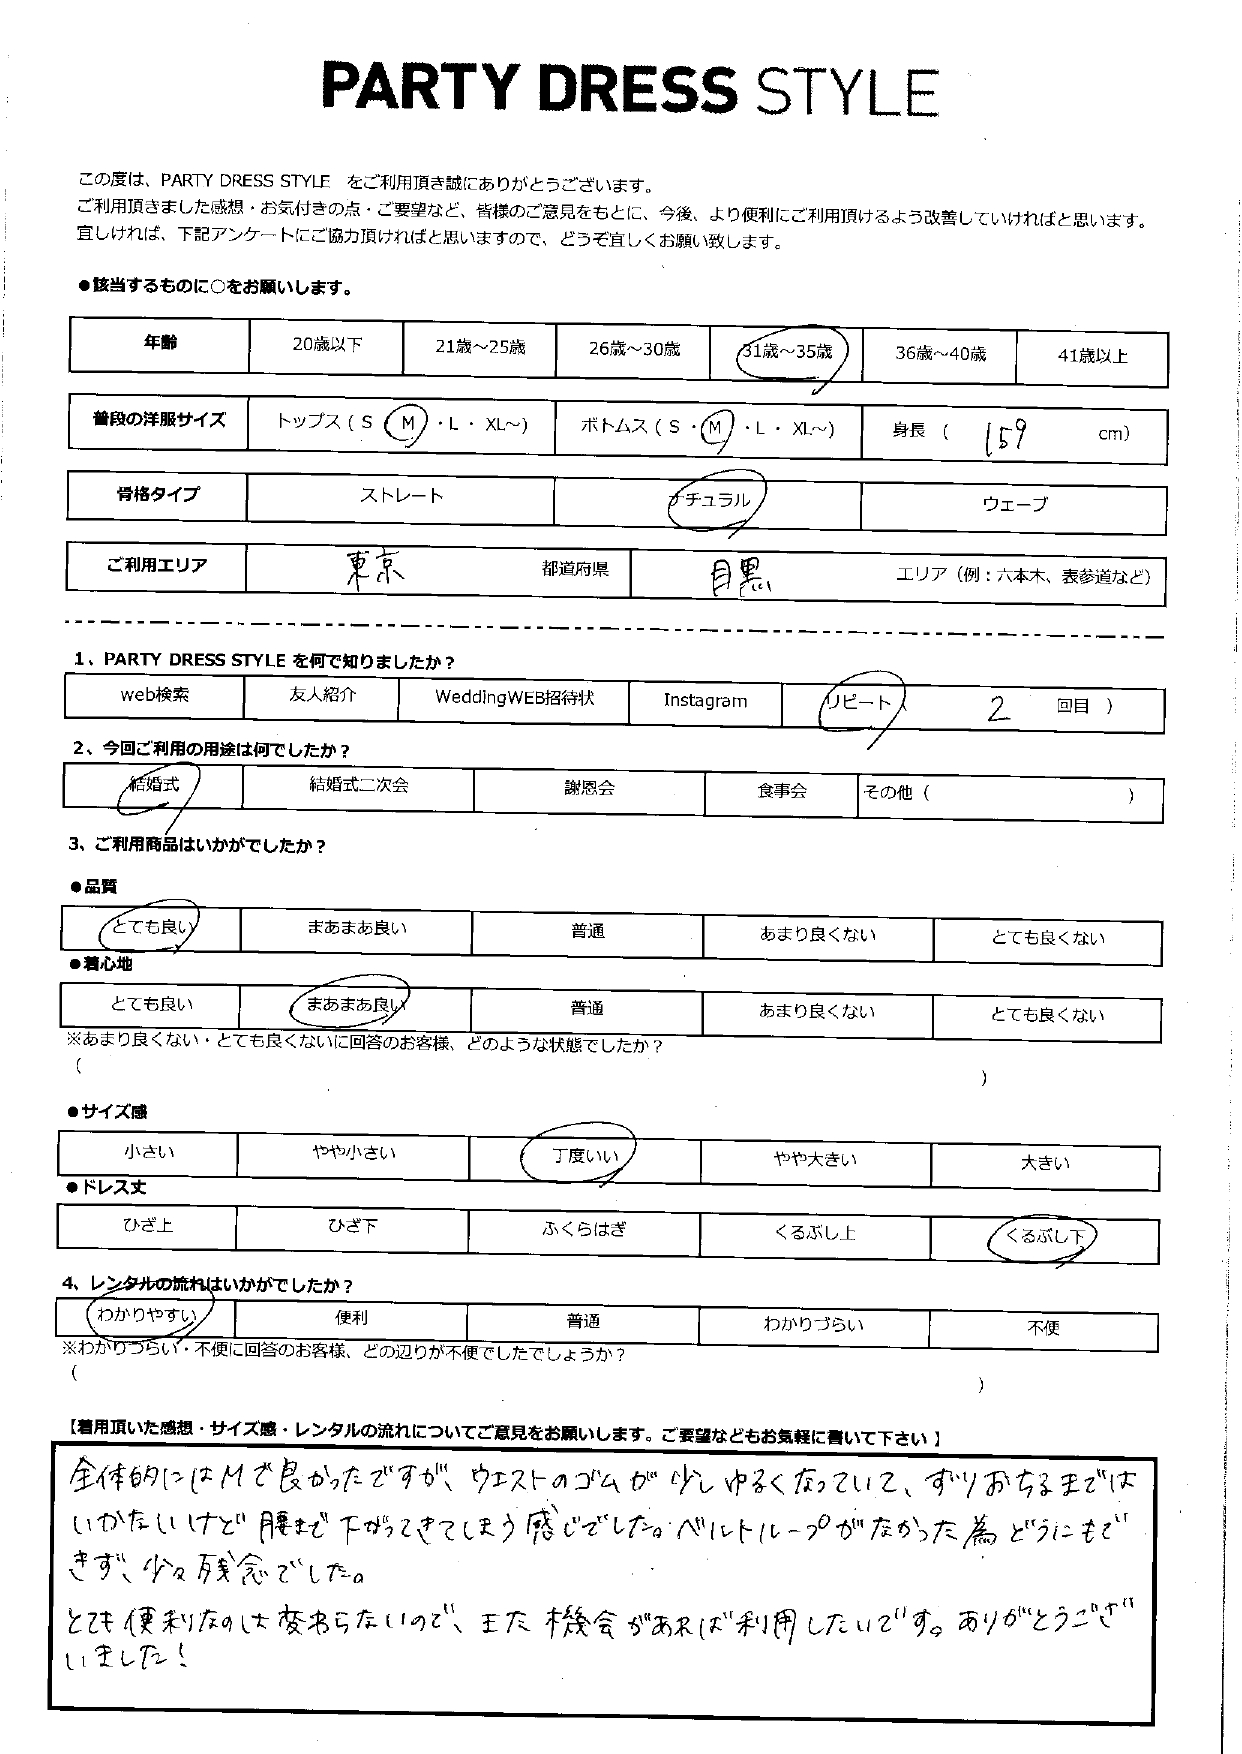 PARTY DRESS STYLE
この度は、PARTY DRESS STYLE をご利用頂き誠にありがとうございます。
ご利用頂きました感想・お気付きの点・ご要望など、皆様のご意見をもとに、今後、より便利にご利用頂けるよう改善していければと思います。
宜しければ、下記アンケートにご協力頂ければと思いますので、どうぞ宜しくお願い致します。
●該当するものに○をお願いします。
年齢 20歳以下 21歳～25歳 26歳～30歳 31歳～35歳 36歳～40歳 41歳以上
普段の洋服サイズ トップス ( S ・ M ・ L ・ XL～) ボトムス ( S ・ M ・ L ・ XL～) 身長 ( 159 cm)
骨格タイプ ストレート ナチュラル ウェーブ
ご利用エリア 東京 都道府県 目黒 エリア（例：六本木、表参道など）
1、PARTY DRESS STYLE を何で知りましたか？
web検索 友人紹介 WeddingWEB招待状 Instagram リピート ( 2 回目 )
2、今回ご利用の用途は何でしたか？
結婚式 結婚式二次会 謝恩会 食事会 その他 ( )
3、ご利用商品はいかがでしたか？
●品質
とても良い まあまあ良い 普通 あまり良くない とても良くない
●着心地
とても良い まあまあ良い 普通 あまり良くない とても良くない
※あまり良くない・とても良くないに回答のお客様、どのような状態でしたか？
( )
●サイズ感
小さい やや小さい 丁度いい やや大きい 大きい
●ドレス丈
ひざ上 ひざ下 ふくらはぎ くるぶし上 くるぶし下
4、レンタルの流れはいかがでしたか？
わかりやすい 便利 普通 わかりづらい 不便
※わかりづらい・不便に回答のお客様、どの辺りが不便でしたでしょうか？
( )
【着用頂いた感想・サイズ感・レンタルの流れについてご意見をお願いします。ご要望などもお気軽に書いて下さい】
全体的にはMで良かったですが、ウエストのゴムが少しゆるくなっていて、ずりおちるまでは
いかないけど腰まで下がってきてしまう感じでした。ベルトループがなかった為どうにもで
きず、少々残念でした。
とても便利なのは変わらないので、また機会があれば利用したいです。ありがとうござ
いました！